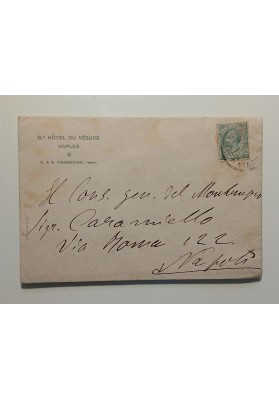 Gd HÔTEL DU VÉSUVE
NAPLES
Al Cons. gen. del Montenegro
Sigr. Caramiello
Via Roma 122
Napoli